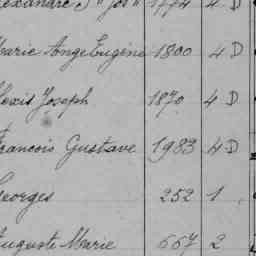 exandre J " Jos " 1774 4 D
Marie Ange Eugène 1800 4 D
Louis Joseph 1870 4 D
François Gustave 1983 4 D
Georges 252 1
Auguste Marie 667 2